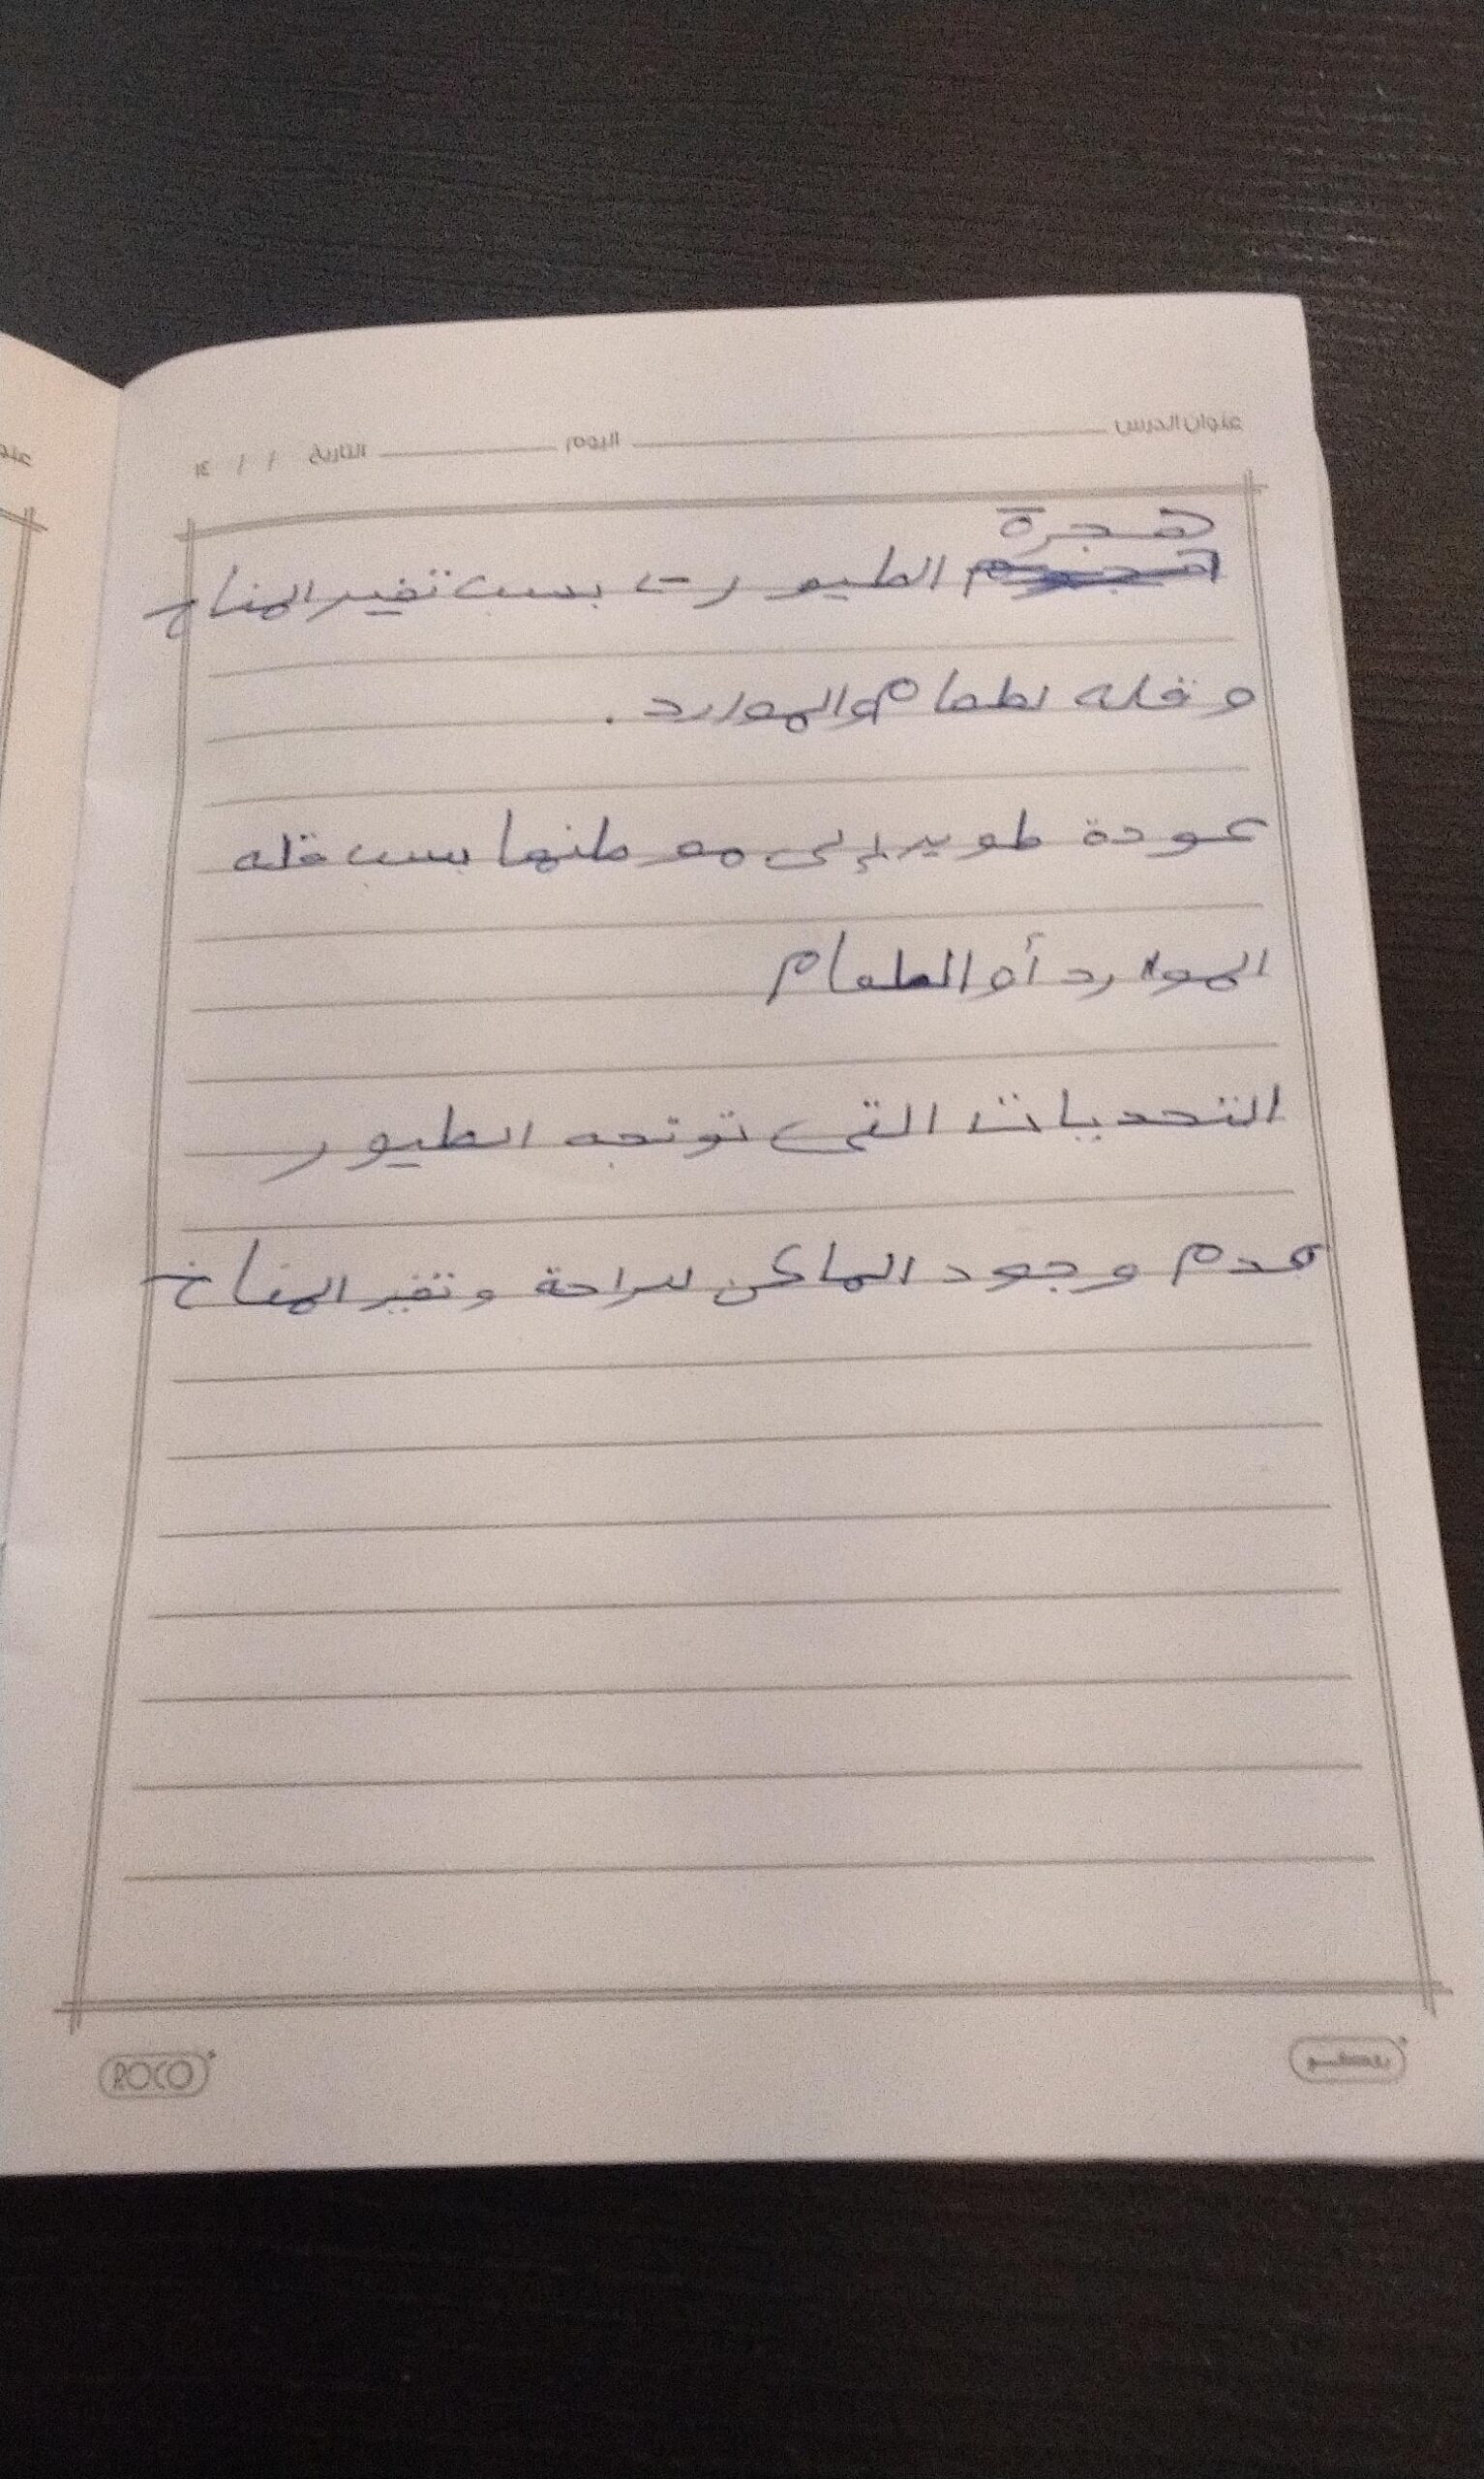 عنوان الدرس اليوم التاريخ / / ١٤
هجرة
الطيور بسبب تغير المناخ
وقله لطعام والموارد .
عودة طوير إلى موطنها بسبب قله
الموارد أو الطعام
التحديات التي توتجه الطيور
عدم وجود الماكن للراحة وتغير المناخ
ROCO روكو